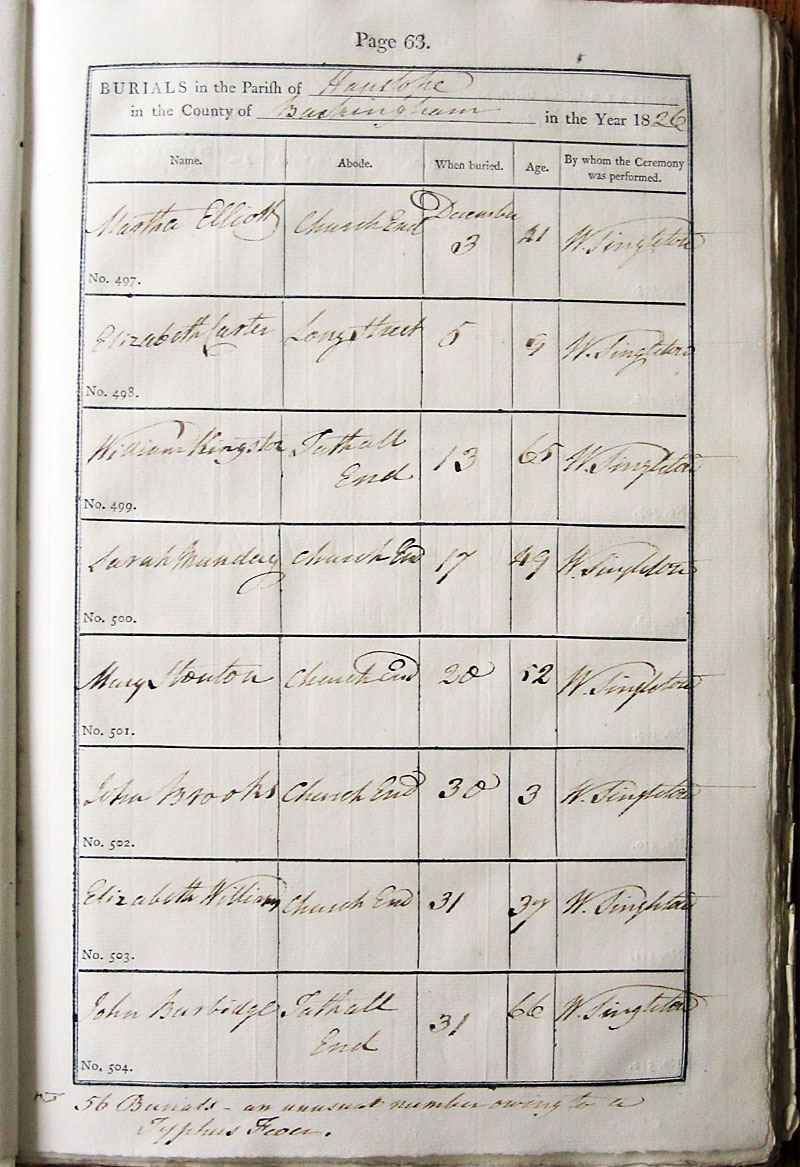 Page 63.
BURIALS in the Parish of Hanslope
in the County of Buckingham in the Year 1826
Name. Abode. When buried. Age. By whom the Ceremony was performed.
Martha Elliott Church End December 3 21 W. Singleton
No. 497.
Elizabeth Carter Long Street 5 9 W. Singleton
No. 498.
William Kingston Tathall End 13 65 W. Singleton
No. 499.
Sarah Munday Church End 17 49 W. Singleton
No. 500.
Mary Stonton Church End 20 52 W. Singleton
No. 501.
John Brooks Church End 30 3 W. Singleton
No. 502.
Elizabeth Williams Church End 31 37 W. Singleton
No. 503.
John Barbidge Tathall End 31 66 W. Singleton
No. 504.
56 Burials - an unusual number owing to a
Typhus Fever.